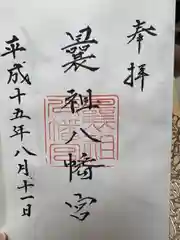 奉拝
曩祖八幡宮
平成十五年八月十一日